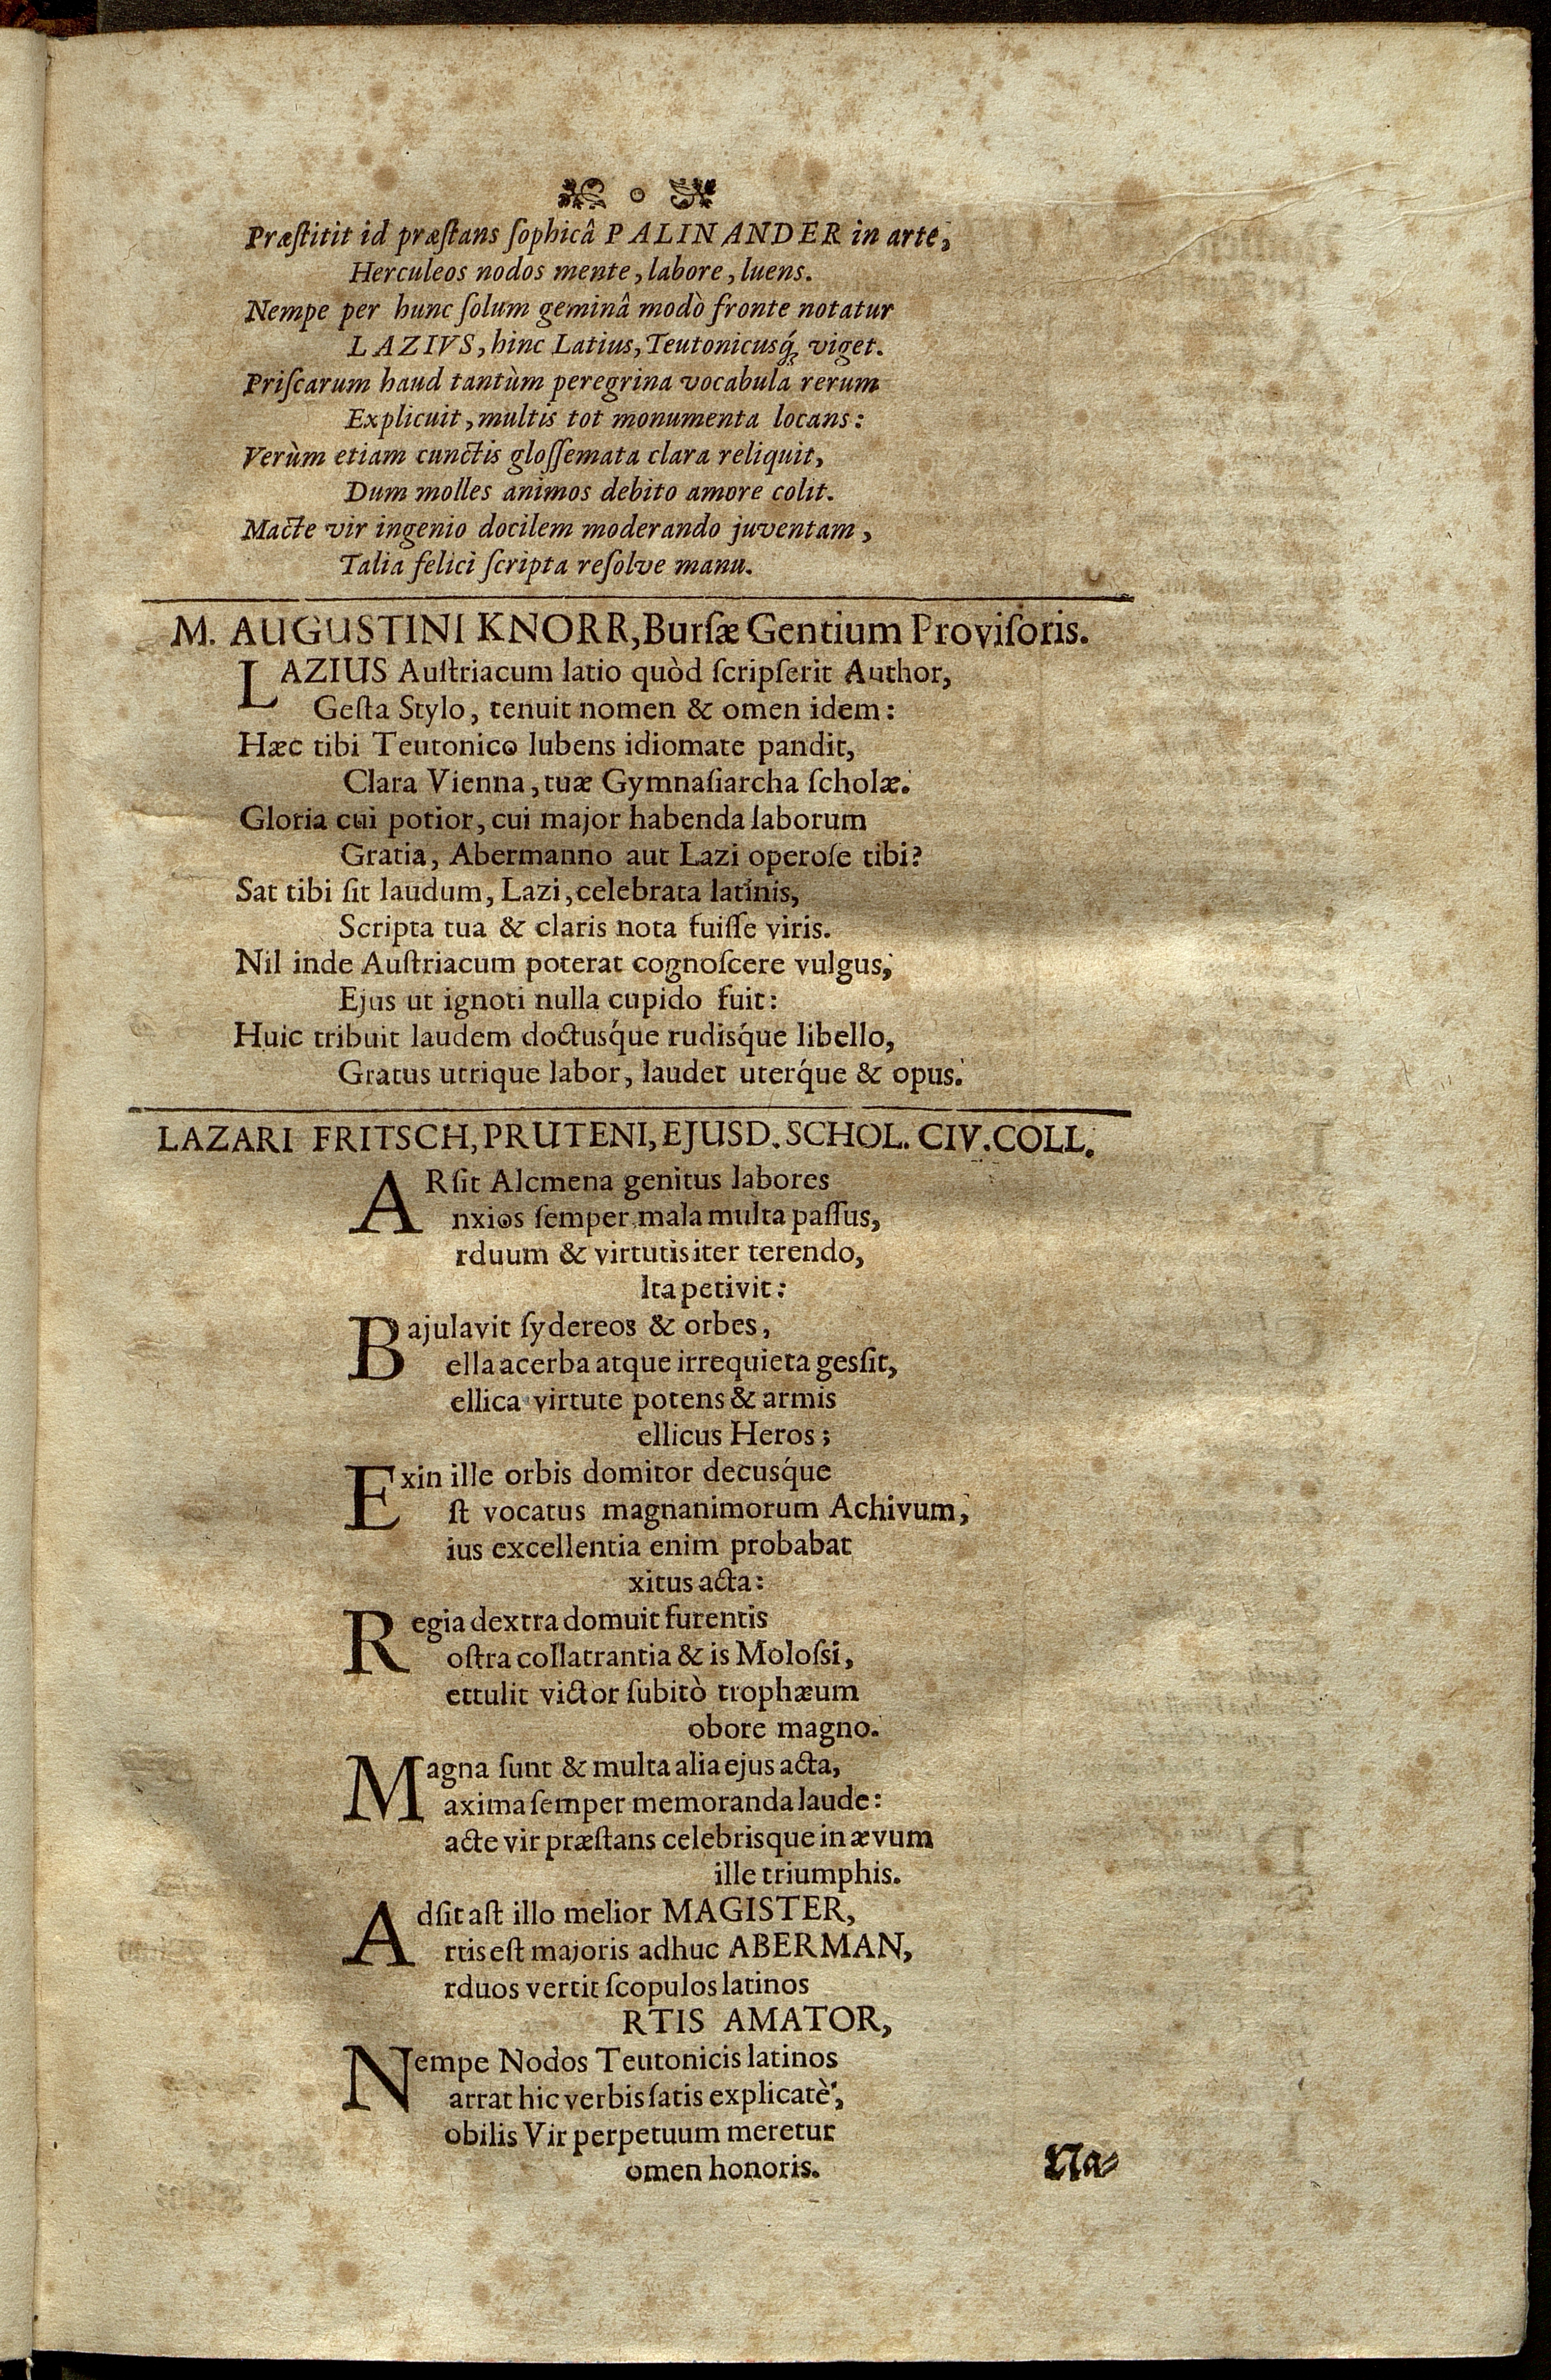 Præſtitit id præſtans ſophicâ PALINANDER in arte,
Herculeos nodos mente, labore, luens.
Nempe per hunc ſolum geminâ modò fronte notatur
LAZIVS, hinc Latius, Teutonicusq́; viget.
Priſcarum haud tantùm peregrina vocabula rerum
Explicuit, multis tot monumenta locans:
Verùm etiam cunctis gloſſemata clara reliquit,
Dum molles animos debito amore colit.
Macte vir ingenio docilem moderando juventam,
Talia felici ſcripta reſolve manu.
M. AUGUSTINI KNORR, Burſæ Gentium Proviſoris.
LAZIUS Auſtriacum latio quòd ſcripſerit Author,
Geſta Stylo, tenuit nomen & omen idem:
Hæc tibi Teutonico lubens idiomate pandit,
Clara Vienna, tuæ Gymnaſiarcha ſcholæ.
Gloria cui potior, cui major habenda laborum
Gratia, Abermanno aut Lazi operoſe tibi?
Sat tibi ſit laudum, Lazi, celebrata latinis,
Scripta tua & claris nota fuiſſe viris.
Nil inde Auſtriacum poterat cognoſcere vulgus,
Ejus ut ignoti nulla cupido fuit:
Huic tribuit laudem doctusq́ue rudisq́ue libello,
Gratus utrique labor, laudet uterq́ue & opus.
LAZARI FRITSCH, PRUTENI, EJUSD. SCHOL. CIV. COLL.
ARſit Alcmena genitus labores
nxios ſemper mala multa paſſus,
rduum & virtutis iter terendo,
lta petivit:
Bajulavit ſydereos & orbes,
ella acerba atque irrequieta gesſit,
ellica virtute potens & armis
ellicus Heros;
Exin ille orbis domitor decusq́ue
ſt vocatus magnanimorum Achivum,
ius excellentia enim probabat
xitus acta:
Regia dextra domuit furentis
oſtra collatrantia & is Molosſi,
ettulit victor ſubitò trophæum
obore magno.
Magna ſunt & multa alia ejus acta,
axima ſemper memoranda laude:
acte vir præſtans celebrisque in ævum
ille triumphis.
Adſit aſt illo melior MAGISTER,
rtis eſt majoris adhuc ABERMAN,
rduos vertit ſcopulos latinos
RTIS AMATOR,
Nempe Nodos Teutonicis latinos
arrat hic verbis ſatis explicatè,
obilis Vir perpetuum meretur
omen honoris.
Na⸗